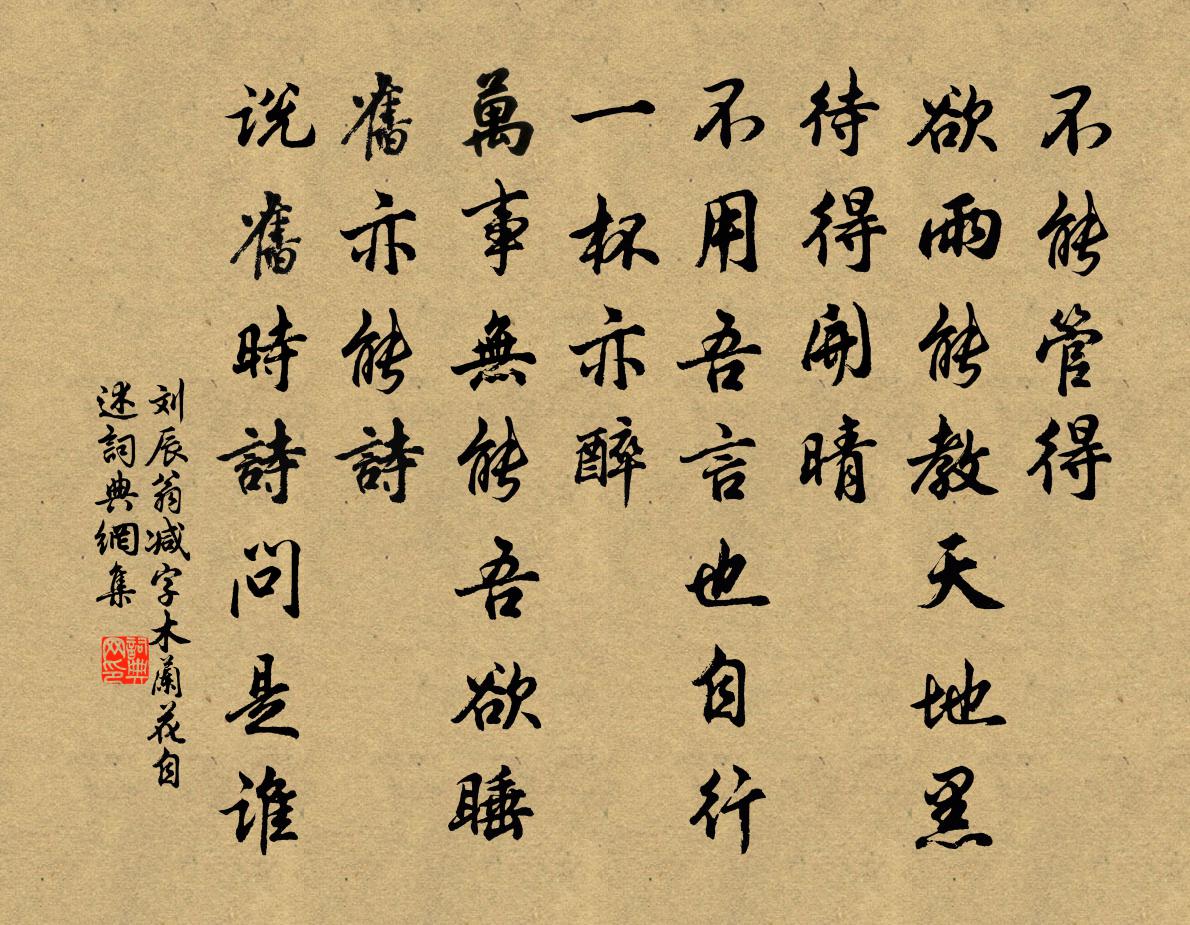 不能管得
欲雨能教天地黑
待得開晴
不用吾言也自行
一杯亦醉
萬事無能吾欲睡
舊亦能詩
说舊時詩問是谁
刘辰翁减字木蘭花自
述詞典網集
詞典
网印